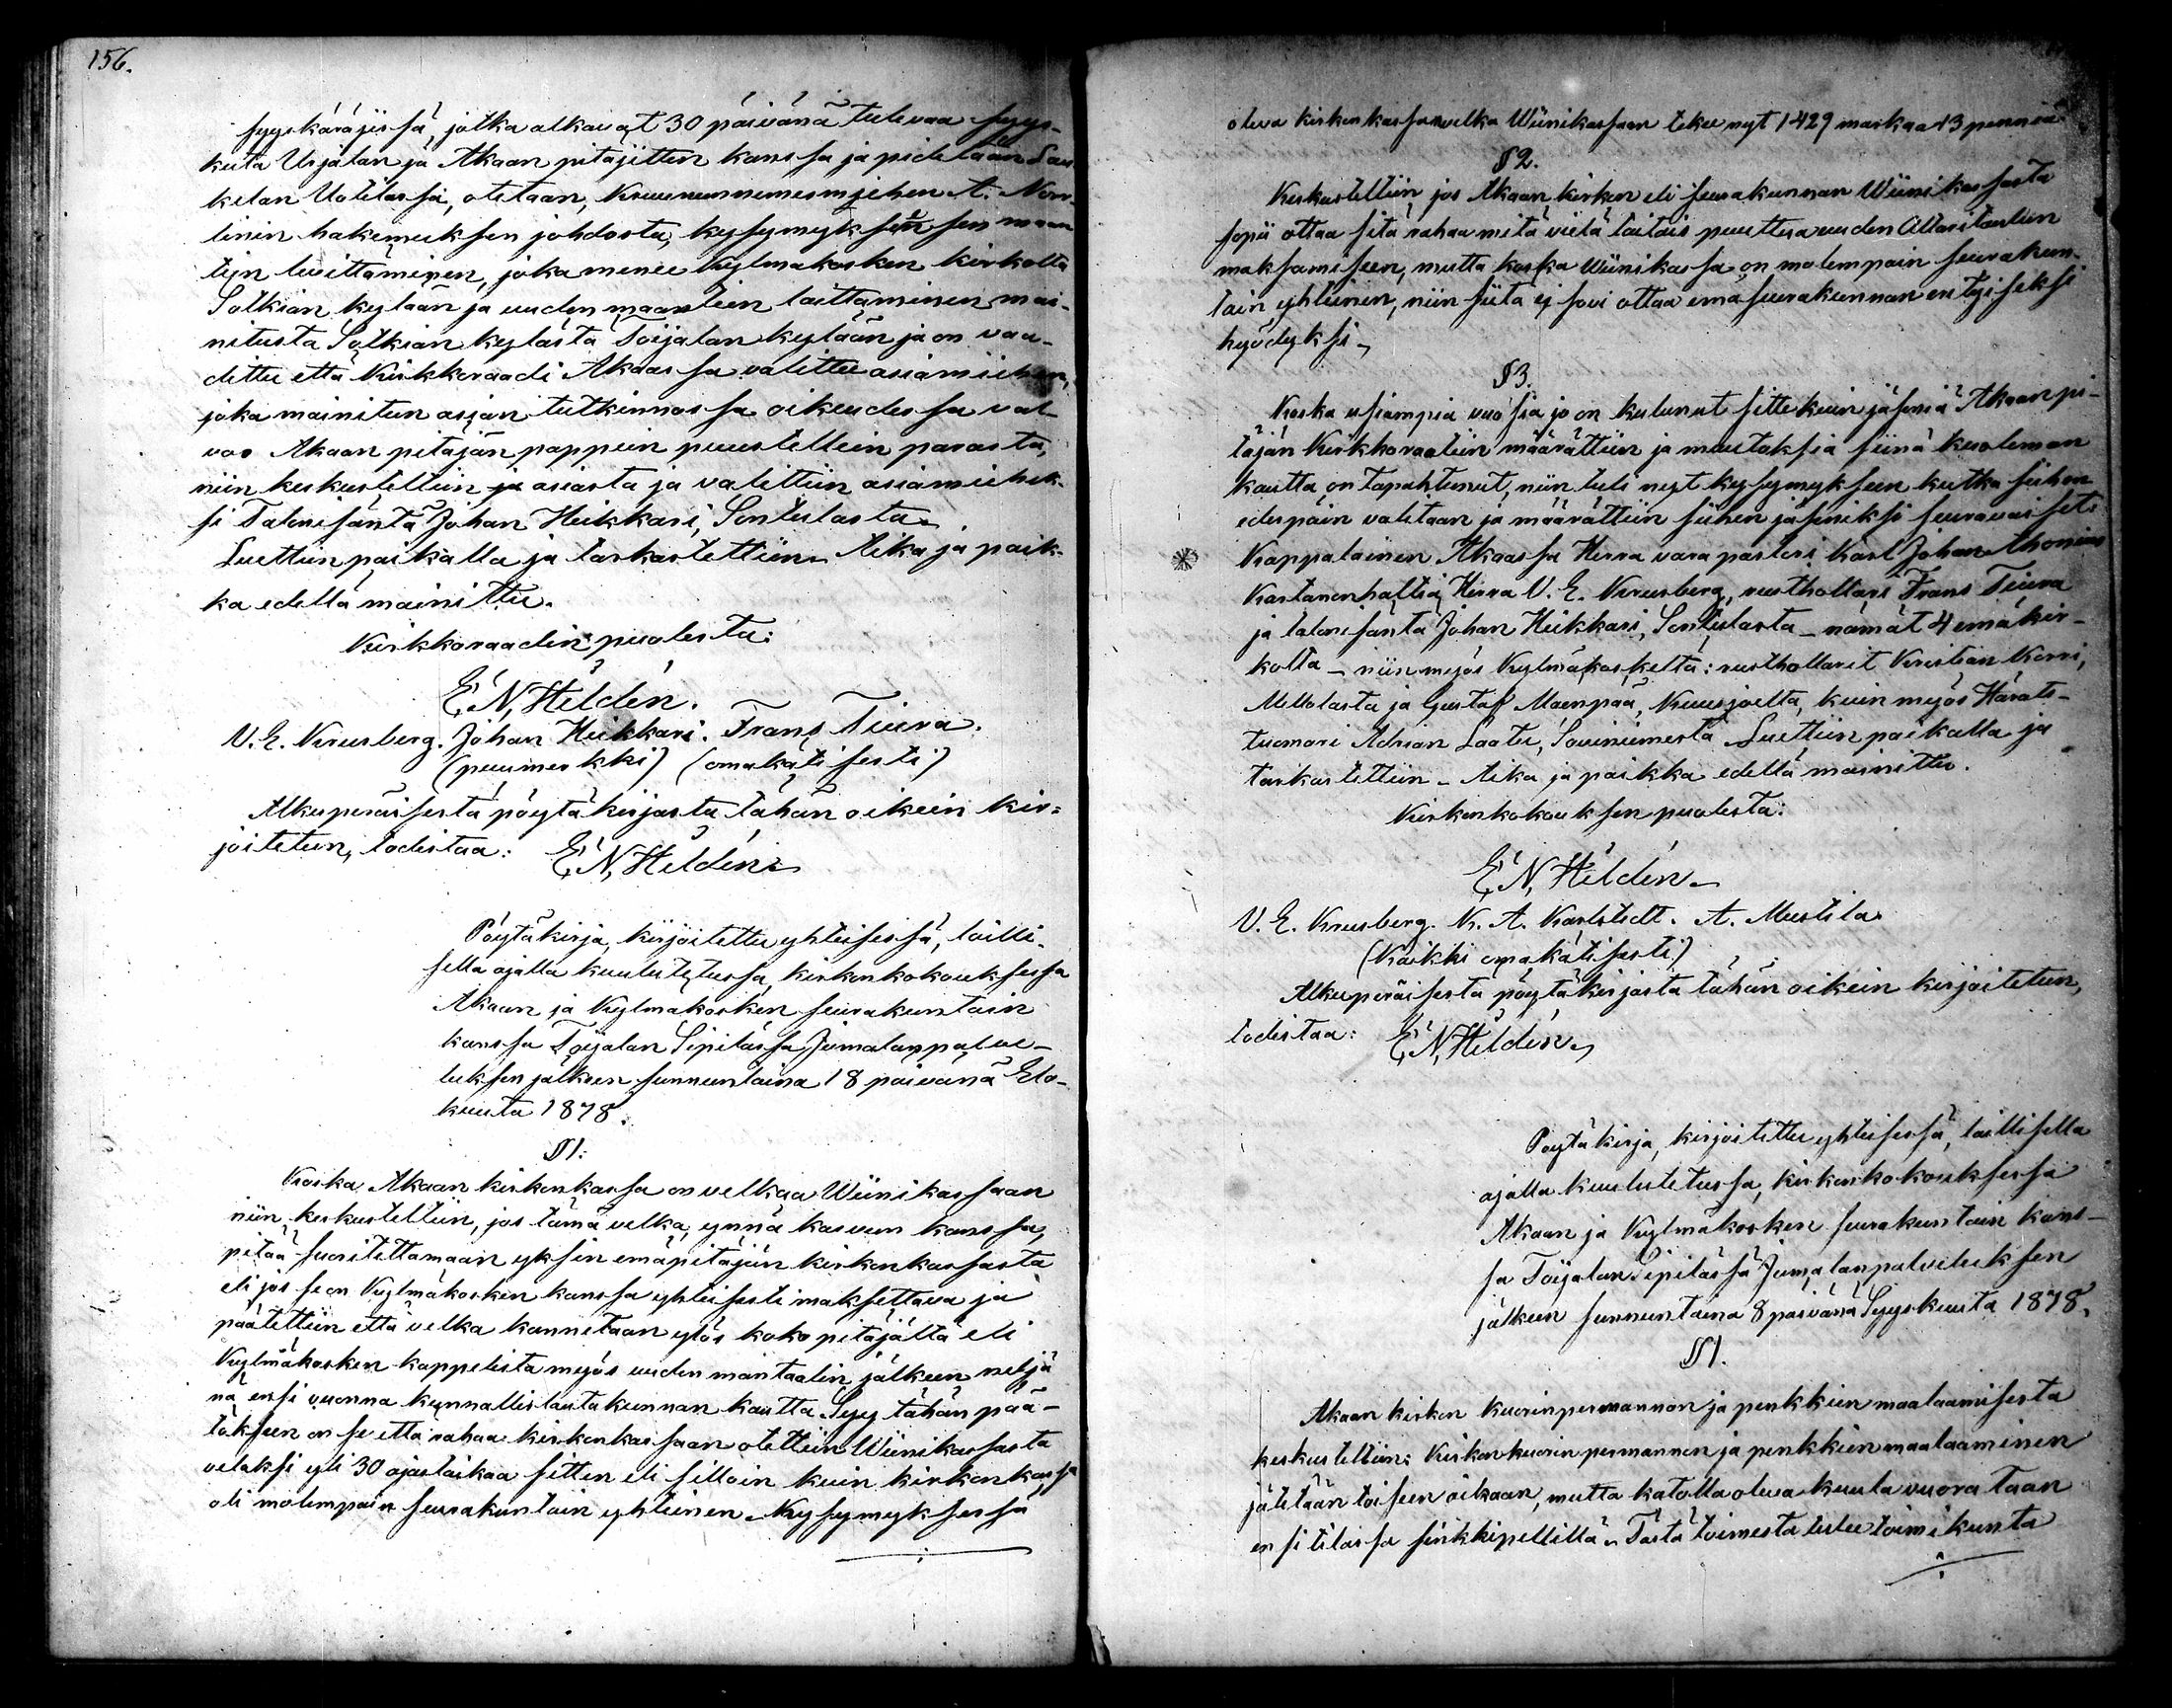 156.
syyskäräjissä, jotka alkavat 30 päivänä tulevaa Syys-
kuta Urjalan ja Akaan pitäjitten kanssa ja pidetään Lau
kelan Uotilassa, otetaan, Kruununnimesmiehen A. Nor-
linin hakemuksen johdosta, kysymyksen sen maan
tijn levittäminen, joka menee Kylmäkosken kirkolta
Sotkian kylään ja uuden maantien laittaminen mai-
nitusta Sotkian kylästä Toijalan kylään ja on vaa-
dittu että Kirkkoraadi Akaassa valittu asiamiehen,
joka mainitun asian tutkinnossa oikeudessa val
voo Akaan pitäjän pappein puustellein parasta,
niin keskusteltiin ja asiasta ja valittiin asiamiehek-
si Talonisäntä Johan Heikkari, Sontulasta.
Luettiin paikalla ja tarkastettiin. Aika ja paik-
ka edellä mainittu.
Kirkkoraadin puolesta:
E. N. Heldén.
V. E. Kreusberg. Johan Heikkari. Frans Tiura.
(puumerkki) (omakätisesti)
Alkuperäisestä pöytäkirjasta tähän oikein kir=
joitetun, todistaa: E. N. Heldén.
Pöytäkirja, kirjoitettu yhteisessä, lailli-
sella ajalla kuulutetussa, kirkonkokouksessa
Akaan ja Kylmäkosken seurakuntain
kanssa Toijalan Sipilässä Jumalanpalve-
luksen jälkeen sunnuntaina 18 päivänä Elo-
kuuta 1878.
§ 1.
Koska Akaan kirkonkassa on velkaa Wiinikassaan
niin keskusteltiin, jos tämä velka, ynnä kasvun kanssa,
pitää suoritettamaan yksin emäpitäjän kirkonkassasta
eli jos se on Kylmäkosken kanssa yhteisesti maksettava ja
päätettiin että velka kannetaan ylös koko pitäjältä eli
Kylmäkosken kappelista myös uuden mantaalin jälkeen neljä
nä ensi vuonna kunnallislautakunnan kautta. Syy tähän pää-
tökseen on se että rahaa kirkonkassaan otettiin Wiinikassasta
velaksi yli 30 ajastaikaa sitten eli silloin kuin kirkonkassa
oli molempain seurakuntain yhteinen. Kysymyksessä
oleva kirkonkassan velka Wiinikassaan tekee nyt 1429 markaa 13 penniä
§ 2.
Keskusteltiin jos Akaan kirkon eli seurakunnan Wiinikassasta
sopii ottaa sitä rahaa mitä vielä taitais puuttua uuden Altaritaulun
maksamiseen, mutta koska Wiinikassa on molempain seurakun-
tain yhteinen, niin siitä ej sovi ottaa emäseurakunnan entyiseksi
hyödyksi.
§ 3.
Koska usiampia vuosia jo on kulunut sitte kuin jäseniä Akaan pi-
täjän Kirkkoraatiin määrättiin ja muutoksia siinä kuoleman
kautta on tapahtunut, niin tuli nyt kysymykseen kutka siihen
edespäin valitaan ja määrättiin siihen jäseniksi seuravaiset:
Kappalainen Akaassa Herra vara pastori Karl Johan
Kartanonhaltia Herra V. E. Kreusberg, rusthollari Frans Tiura
ja talonisäntä Johan Heikkari, Sontulasta _ nämät 4 emäkir-
kolta _ niin myös Kylmäkoskelta: rusthollarit Kristian Korri,
Mellolasta ja Gustaf Maenpää, Kuusjoelta, kuin myös Härats-
tuomari Adrian Laatu, Souiniemestä. Luettiin paikalla ja
tarkastettiin _ Aika ja paikka edellä mainittu.
Kirkonkokouksen puolesta:
E. N. Heldén.
V. E. Kreusberg. K. A. Karlstedt. A. Mustila
(Kaikki omakätisesti)
Alkuperäisestä pöytäkirjasta tähän oikein kirjoitetun,
todistaa: E. N. Heldén.
Pöytäkirja, kirjoitettu yhteisessä, laillisella
ajalla kuulutetussa, kirkonkokouksessa
Akaan ja Kylmäkosken seurakuntain kans-
sa Toijalan Sipilässä Jumalanpalveluksen
jälkeen sunnuntaina 8 päivänä Syyskuuta 1878.
§ 1.
Akaan kirkon kuorinpermannon ja penkkien maalaamisesta
keskusteltiin: Kirkon kuorin permannon ja penkkien maalaaminen
jätetään toiseen aikaan, mutta katolla oleva kuula vuorataan
ensi tilassa sinkkipellillä. Tästä toimesta tulee toimikunta